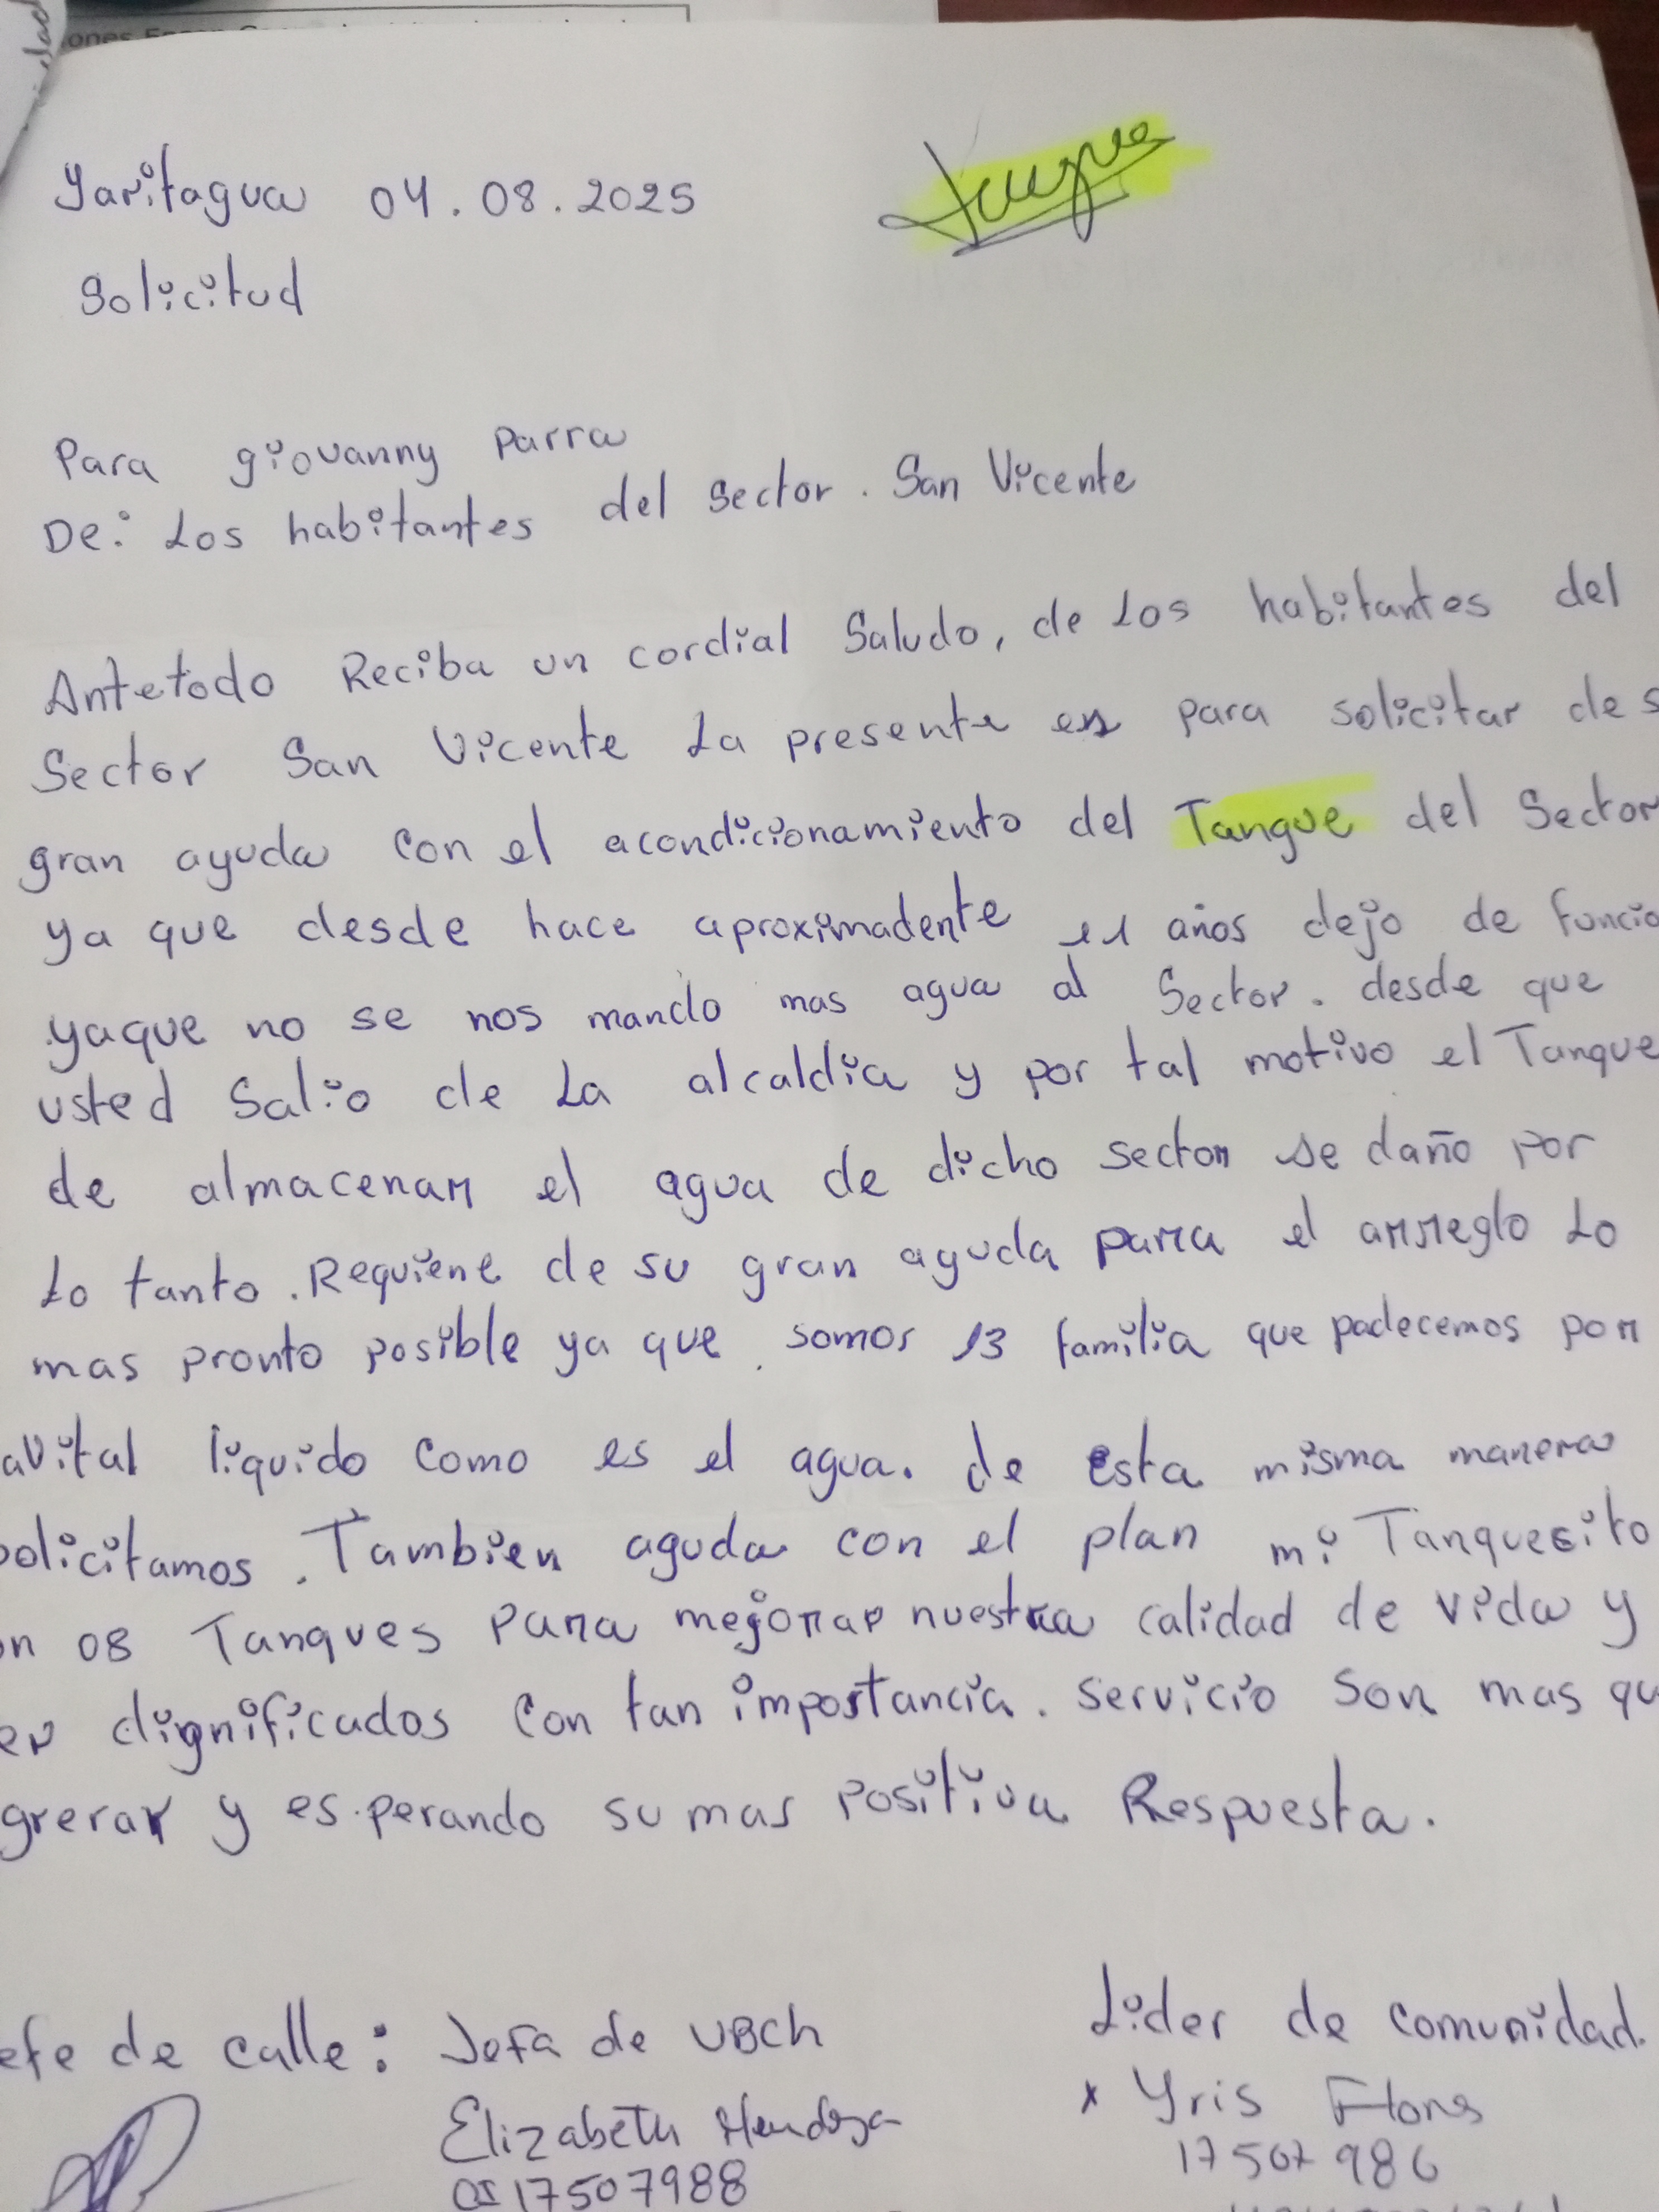 Yaritagua 04.08.2025
Tanque
Solicitud
Para giovanny Parra
De: Los habitantes del Sector. San Vicente
Antetodo Reciba un cordial Saludo, de Los habitantes del
Sector San Vicente La presente es para solicitar de s
gran ayuda con el acondicionamiento del Tanque del Sector
ya que desde hace aproximadente años dejo de funcio
yaque no se nos mando mas agua al Sector. desde que
usted Salio de La alcaldia y por tal motivo el Tanque
de almacenar el agua de dicho sector se daño por
Lo tanto. Requiere de su gran ayuda para el arreglo Lo
mas pronto posible ya que. somos 13 familia que padecemos por
avital liquido como es el agua. de esta misma manera
solicitamos. Tambien ayuda con el plan mi Tanquesito
on 08 Tanques para mejorar nuestra calidad de vida y
er dignificados con tan importancia. servicio son mas qu
grerar y esperando su mas positiva Respuesta.
efe de calle: Jefa de UBCh
Lider de comunidad.
Elizabeth Mendoza
x Yris Flores
CI 17507988
17507986